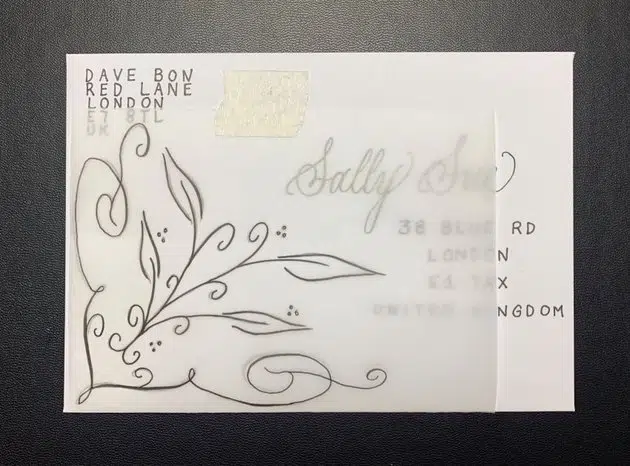 DAVE BON
RED LANE
LONDON
E7 8TL
UK
Sally Sue
38 BLUE RD
LONDON
E1 7AX
UNITED KINGDOM